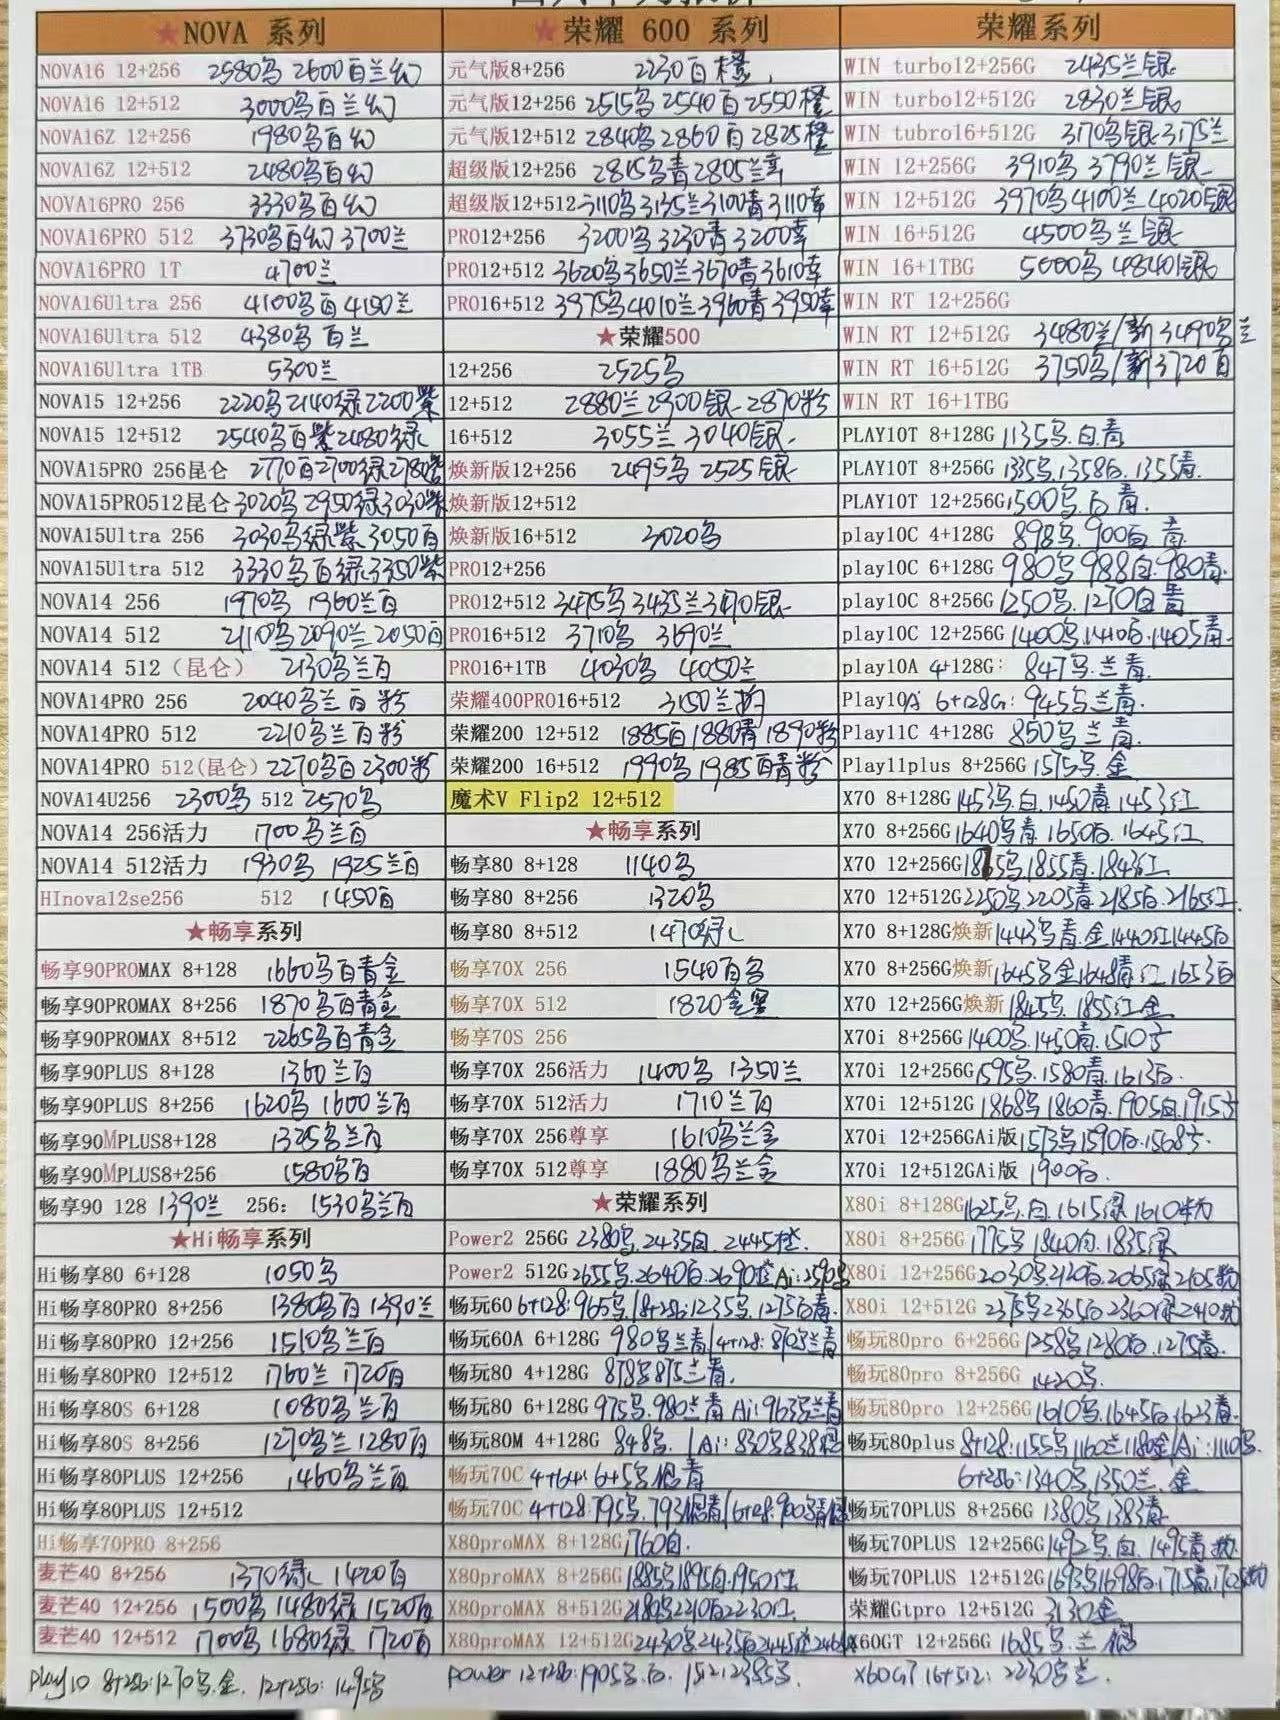 ★NOVA 系列
NOVA16 12+256 2580乌 2600百兰幻
NOVA16 12+512 3000乌百兰幻
NOVA16Z 12+256 1980乌百幻
NOVA16Z 12+512 2480乌百幻
NOVA16PRO 256 3330乌百幻
NOVA16PRO 512 3730乌百幻 3700兰
NOVA16PRO 1T 4700兰
NOVA16Ultra 256 4100乌百 4150兰
NOVA16Ultra 512 4380乌百兰
NOVA16Ultra 1TB 5300兰
NOVA15 12+256 2220乌2140绿2200紫
NOVA15 12+512 2540乌百紫2480绿
NOVA15PRO 256昆仑 2770百2700绿2780紫
NOVA15PRO512昆仑 3020乌 2950绿3030紫
NOVA15Ultra 256 3030乌绿紫 3050百
NOVA15Ultra 512 3330乌百绿3350紫
NOVA14 256 1970乌 1960兰百
NOVA14 512 2110乌2090兰2050百
NOVA14 512（昆仑） 2130乌兰百
NOVA14PRO 256 2040乌兰百粉
NOVA14PRO 512 2210乌兰百粉
NOVA14PRO 512(昆仑) 2270乌百2300粉
NOVA14U256 2300乌 512 2570乌
NOVA14 256活力 1700乌兰百
NOVA14 512活力 1930乌 1925兰百
HInova12se256 512 1450百
★畅享系列
畅享90PROMAX 8+128 1660乌百青金
畅享90PROMAX 8+256 1870乌百青金
畅享90PROMAX 8+512 2265乌百青金
畅享90PLUS 8+128 1360兰百
畅享90PLUS 8+256 1620乌 1600兰百
畅享90MPLUS8+128 1325乌兰百
畅享90MPLUS8+256 1580乌百
畅享90 128 1390兰 256： 1530乌兰百
★Hi畅享系列
Hi畅享80 6+128 1050乌
Hi畅享80PRO 8+256 1380乌百 1390兰
Hi畅享80PRO 12+256 1510乌兰百
Hi畅享80PRO 12+512 1760兰 1720百
Hi畅享80S 6+128 1080乌兰百
Hi畅享80S 8+256 1270乌兰 1280百
Hi畅享80PLUS 12+256 1460乌兰百
Hi畅享80PLUS 12+512
Hi畅享70PRO 8+256
麦芒40 8+256 1370绿 1420百
麦芒40 12+256 1500乌 1480绿 1520百
麦芒40 12+512 1700乌 1680绿 1720百
play10 8+256:1270乌.金. 12+256: 1495乌
★荣耀 600 系列
元气版8+256 2230百橙
元气版12+256 2515乌2540百2550橙
元气版12+512 2840乌2860百2825橙
超级版12+256 2815乌青2805兰幸
超级版12+512 3110乌3135兰3100青3110幸
PRO12+256 3200乌3230青3200幸
PRO12+512 3620乌3650兰3670青3610幸
PRO16+512 3975乌4010兰3960青3950幸
★荣耀500
12+256 2525乌
12+512 2880兰2900银 2870粉
16+512 3055兰 3040银
焕新版12+256 2495乌 2525银
焕新版12+512
焕新版16+512 3020乌
PRO12+256
PRO12+512 3475乌3435兰3470银
PRO16+512 3710乌 3690兰
PRO16+1TB 4030乌 4050兰
荣耀400PRO16+512 3150兰
荣耀200 12+512 1885百1880青1890粉
荣耀200 16+512 1990乌1985百青粉
魔术V Flip2 12+512
★畅享系列
畅享80 8+128 1140乌
畅享80 8+256 1320乌
畅享80 8+512 1470绿
畅享70X 256 1540百乌
畅享70X 512 1820金黑
畅享70S 256
畅享70X 256活力 1400乌 1350兰
畅享70X 512活力 1710兰百
畅享70X 256尊享 1610乌兰金
畅享70X 512尊享 1880乌兰金
★荣耀系列
Power2 256G 2380乌.2435白.2445橙.
Power2 512G 2655乌.2640白.2690橙Ai:2590乌
畅玩60 6+128:965乌/8+256:1235乌.1275百青.
畅玩60A 6+128G 980乌兰青/4+128:870乌兰青
畅玩80 4+128G 878乌875兰青.
畅玩80 6+128G 975乌.980兰青 Ai:963乌兰青
畅玩80M 4+128G 848乌. /Ai:830乌838
畅玩70C 4+64: 6+5乌 青
畅玩70C 4+128:795乌.793 青/6+128:900乌青
X80proMAX 8+128G 1760白.
X80proMAX 8+256G 1885乌1895白.1950红
X80proMAX 8+512G 2180乌2210白2230红.
X80proMAX 12+512G 2430乌2435白2445
power 12+256:1905乌.白. /512:2385乌.
荣耀系列
WIN turbo12+256G 2435兰银
WIN turbo12+512G 2830兰银
WIN tubro16+512G 3170乌银3175兰
WIN 12+256G 3910乌 3790兰银
WIN 12+512G 3970乌4100兰 4020银
WIN 16+512G 4500乌兰银
WIN 16+1TBG 5000乌 4840银
WIN RT 12+256G
WIN RT 12+512G 3480兰/新3490乌兰
WIN RT 16+512G 3750乌/新3720百
WIN RT 16+1TBG
PLAY10T 8+128G 1135乌.白.青
PLAY10T 8+256G 1335乌.1358白.1355青.
PLAY10T 12+256G 1500乌.白青.
play10C 4+128G 898乌.900百青.
play10C 6+128G 980乌988白.980青.
play10C 8+256G 1250乌.1270白青
play10C 12+256G 1400乌.1410白.1405青.
play10A 4+128G: 847乌.兰青.
Play10A 6+128G: 945乌兰青.
Play11C 4+128G 850乌兰青.
Play11plus 8+256G 1575乌.金
X70 8+128G 1453乌.白.1450青.1453红
X70 8+256G 1640乌青.1650白.1645红
X70 12+256G 1865乌.1855青.1843红
X70 12+512G 2250乌.2205青.2185白.2165红.
X70 8+128G焕新 1443乌青.金1440红1445白
X70 8+256G焕新 1645乌金1648青红.1653白
X70 12+256G焕新 1845乌.1855红金
X70i 8+256G 1400乌.1450青.1510方
X70i 12+256G 1595乌.1580青.1613白.
X70i 12+512G 1868乌1860青.1905白.1915方
X70i 12+256GAi版 1573乌1590白.1568方.
X70i 12+512GAi版 1900白.
X80i 8+128G 1625乌.白.1615绿1610粉
X80i 8+256G 1775乌1840白.1835绿
X80i 12+256G 2030乌2120白.2065绿2105粉
X80i 12+512G 2375乌2365白2360绿2410粉
畅玩80pro 6+256G 1258乌1280白.1275青.
畅玩80pro 8+256G 1420乌.
畅玩80pro 12+256G 1610乌.1645白.1623青.
畅玩80plus 8+128:1155乌1160兰1180金/Ai:1110乌.
6+256:1340乌.1350兰.金
畅玩70PLUS 8+256G 1380乌.1383青.
畅玩70PLUS 12+256G 1492乌.白.1495青
畅玩70PLUS 12+512G 1693乌1698白.1715青
荣耀Gtpro 12+512G 3130金
X60GT 12+256G 1685乌.兰
X60GT 16+512: 2230乌兰.